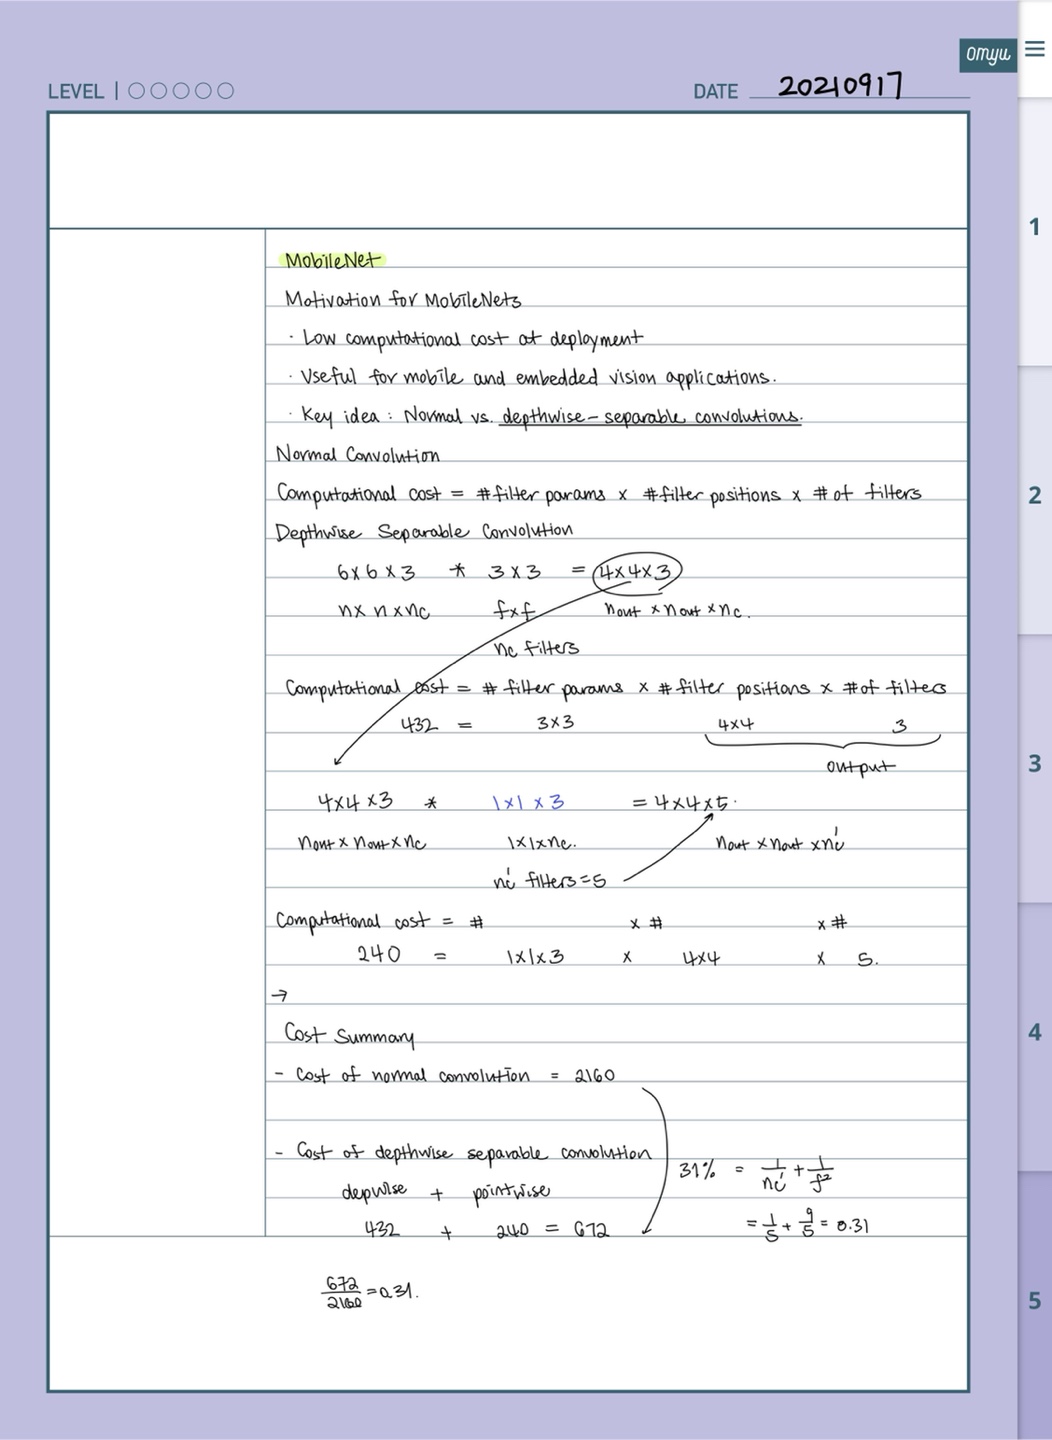 omyu
LEVEL | ○○○○○
DATE 20210917
MobileNet
Motivation for MobileNets
· Low computational cost at deployment
· Useful for mobile and embedded vision applications.
· Key idea : Normal vs. depthwise-separable convolutions.
Normal Convolution
Computational cost = #filter params x #filter positions x # of filters
Depthwise Separable Convolution
6x6x3 * 3x3 = 4x4x3
nx n xnc fxf nout xnout xnc.
nc filters
Computational cost = # filter params x # filter positions x #of filters
432 = 3x3 4x4 3
output
4x4x3 * 1x1 x3 = 4x4x5.
nout x nout x nc 1x1xnc. nout xnout xnc'
nc' filters=5
Computational cost = # x # x #
240 = 1x1x3 x 4x4 x 5.
→
Cost Summary
- Cost of normal convolution = 2160
- Cost of depthwise separable convolution
31% = 1/nc' + 1/f²
depwise + pointwise
432 + 240 = 672
= 1/5 + 9/5 = 0.31
672/2160 = 0.31.
1
2
3
4
5